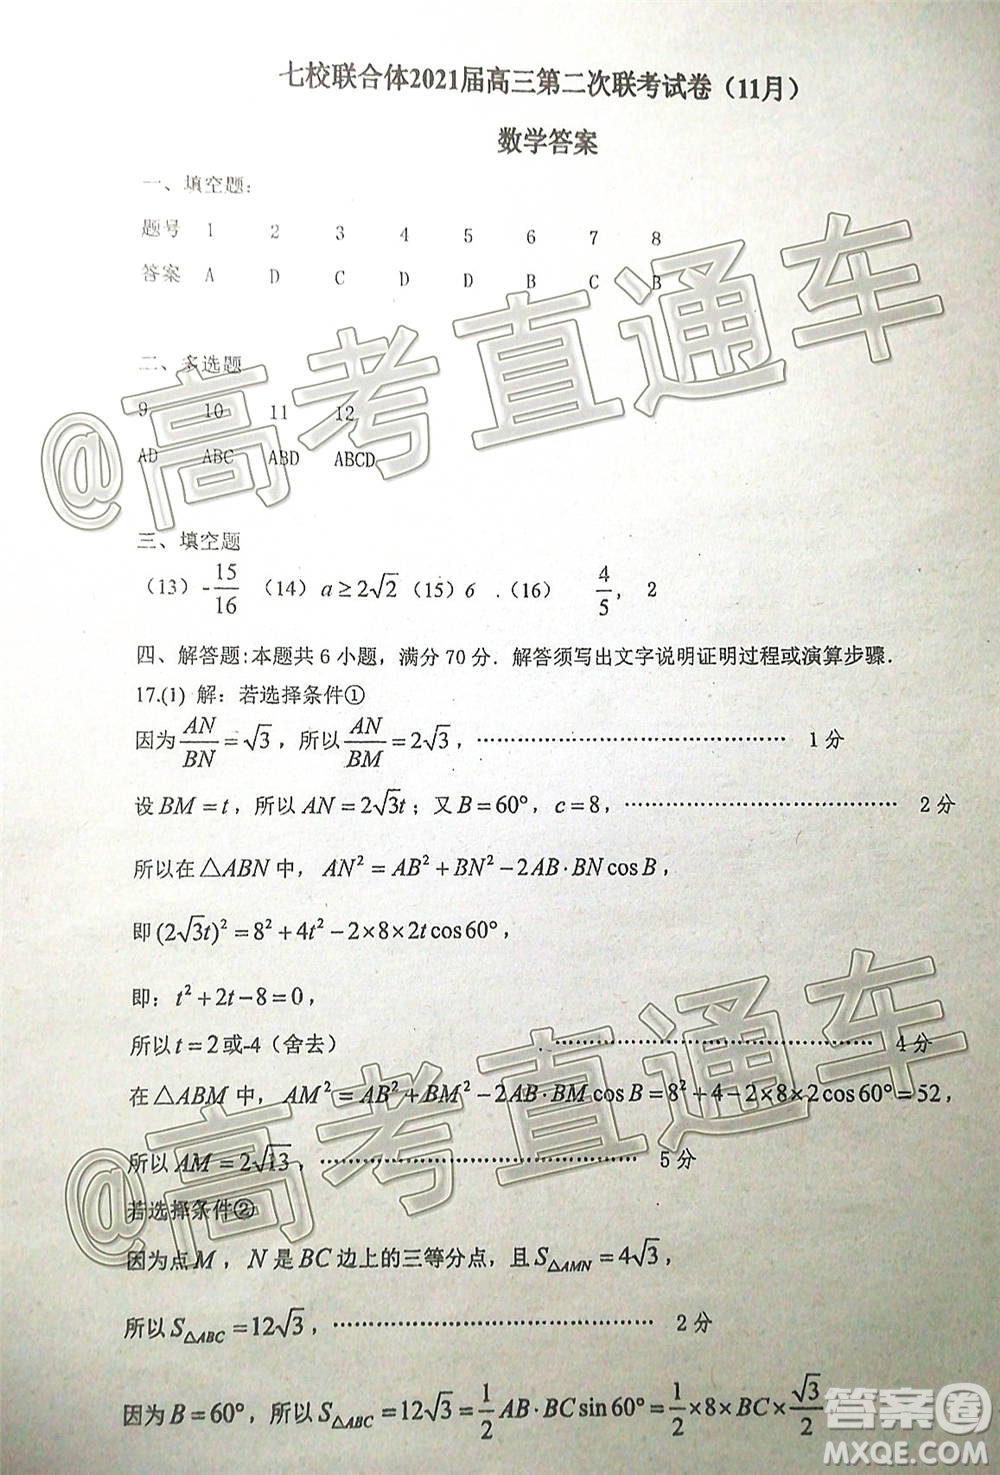 七校联合体2021届高三第二次联考试卷（11月）
数学答案
一、填空题:
题号 1 2 3 4 5 6 7 8
答案 A D C D D B C B
二、多选题
9 10 11 12
AD ABC ABD ABCD
三、填空题
（13）-15/16 （14）a≥2√2（15）6 .（16） 4/5， 2
四、解答题:本题共6小题，满分70分．解答须写出文字说明证明过程或演算步骤．
17.(1) 解：若选择条件①
因为AN/BN=√3，所以AN/BM=2√3，………………………………………… 1分
设BM=t，所以AN=2√3t；又B=60°，c=8，…………………………………… 2分
所以在△ABN中，AN²=AB²+BN²-2AB·BNcosB，
即(2√3t)²=8²+4t²-2×8×2tcos60°，
即：t²+2t-8=0，
所以t=2或-4（舍去） ………………………………………… 4分
在△ABM中，AM²=AB²+BM²-2AB·BMcosB=8²+4-2×8×2cos60°=52，
所以AM=2√13，………………………………………… 5分
若选择条件②
因为点M，N是BC边上的三等分点，且S△AMN=4√3，
所以S△ABC=12√3，………………………………………… 2分
因为B=60°，所以S△ABC=12√3=1/2AB·BCsin60°=1/2×8×BC×√3/2
@高考直通车
@高考直通车
答案圈
MXQE.COM